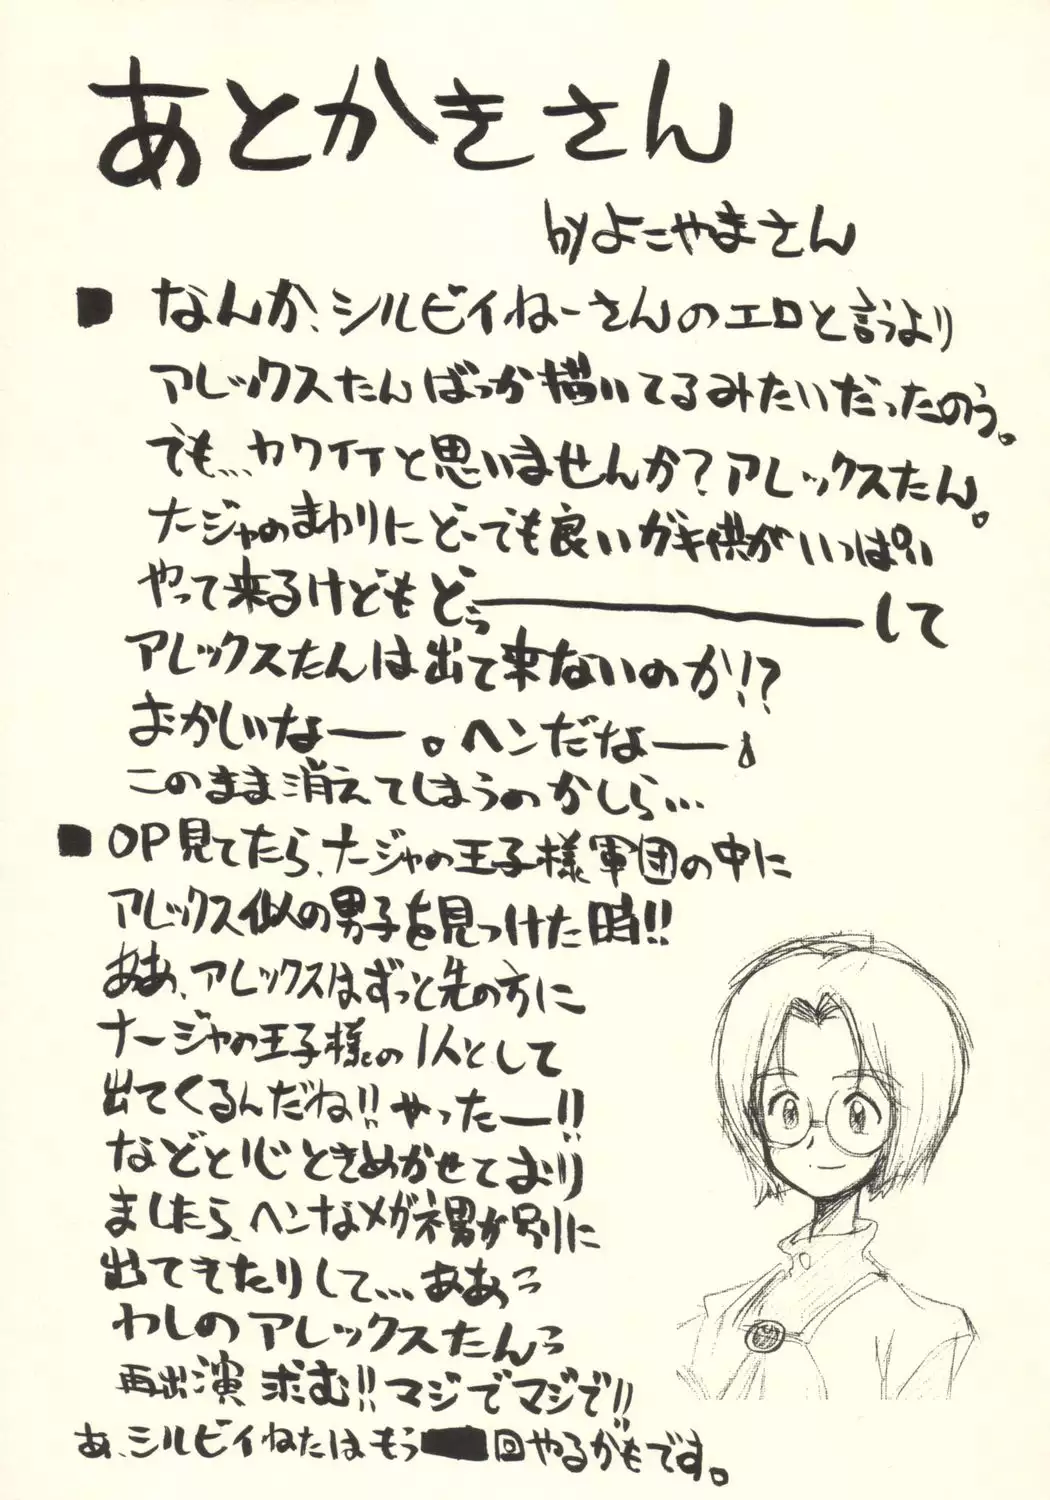 あとかきさん
byよこやまさん
■ なんか、シルビィねーさんのエロと言うより
アレックスたんばっか描いてるみたいだったのう。
でも…カワイイと思いませんか?アレックスたん。
ナージャのまわりにどーでも良いガキ供がいっぱい
やって来るけどもどぅ━━━━━して
アレックスたんは出て来ないのか!?
おかしいなー。ヘンだなー。
このまま消えてしまうのかしら…
■ OP見てたら、ナージャの王子様軍団の中に
アレックス似の男子を見つけた時!!
ああ、アレックスはずっと先の方に
ナージャの王子様の1人として
出てくるんだね!!やったー!!
などと心ときめかせており
ましたら、ヘンなメガネ男が別に
出てきたりして…ああっ
わしのアレックスたんっ
再出演求む!!マジでマジで!!
あ、シルビィねたはもう 回やるかもです。